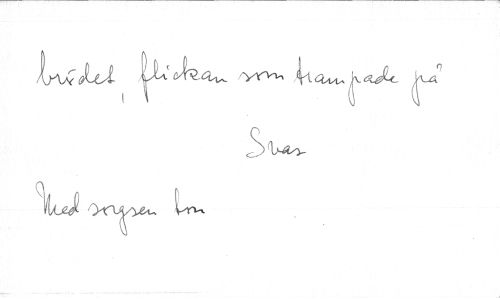 brödet, flickan som trampade på
Svar
Med sorgsen ton